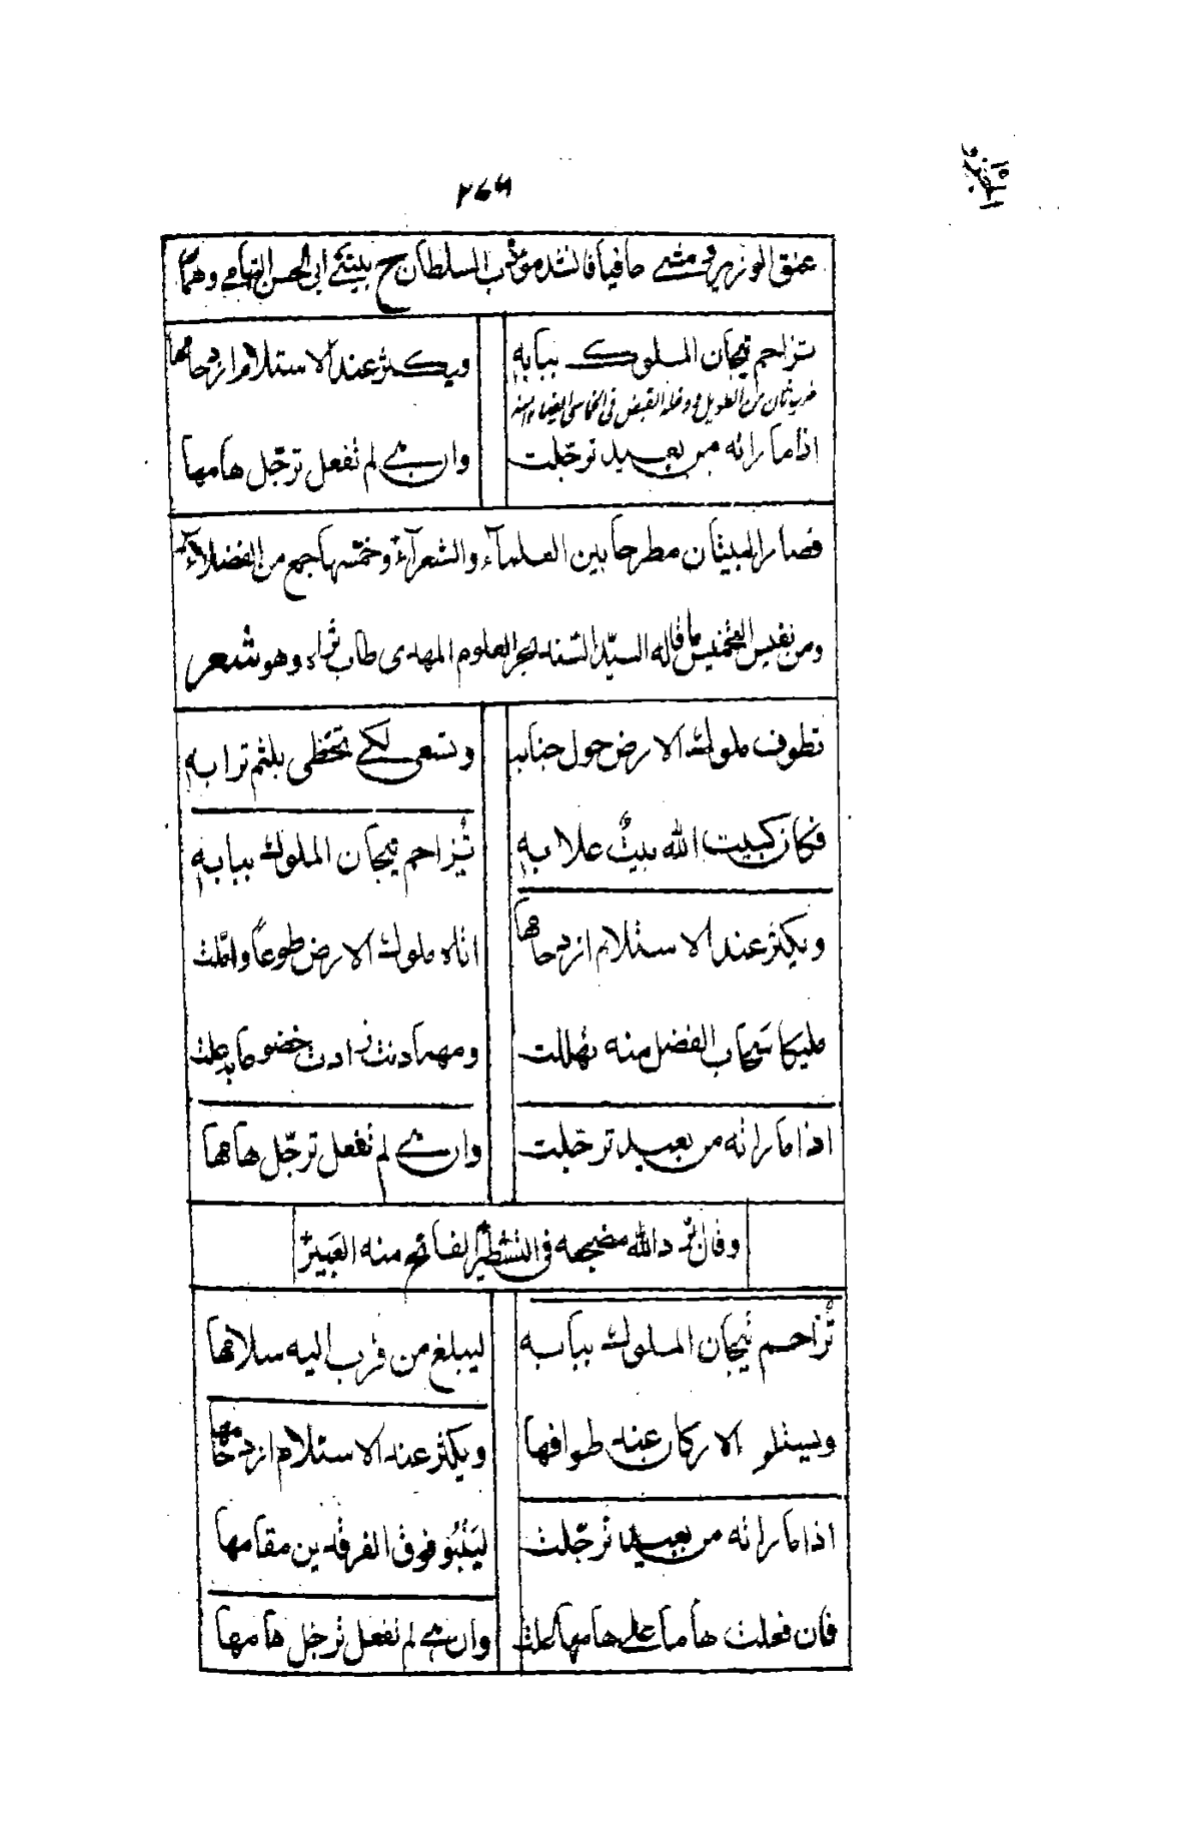 ٢٦٩
عنق الوزير ومشى حافيا فانشد مؤدب السلطان ح بيتي ابي الحسن التهامي وهما
تزاحم تيجان الملوك ببابه ويكثر عند الاستلام ازدحامها
ضرب ثان من الطويل وقد القبض في الخماسي
اذا ما راته من بعيد ترجلت وان هي لم تفعل ترجّل هامها
فصار البيتان مطرحا بين العلمآء والشعرآء وخمّسهما جمع من الفضلاء
ومن نفيس التخميس ما قاله السيّد السند بحر العلوم المهدى طاب ثراه وهو شعر
تطوف ملوك الارض حول جنابه وتسعى لكي تحظى بلثم ترابه
فكان كبيت الله بيتٌ علا به تُزاحم تيجان الملوك ببابه
ويكثر عند الاستلام ازدحامها اتاه ملوك الارض طوعًا واملت
مليكا سَحاب الفضل منه تهللت ومهما دنت زادت خضوعا به علت
اذا ما راته من بعيد ترجلت وان هي لم تفعل ترجّل هامها
وقال برّد الله مضجعه في التشطير الفائح منه العَبير
تُزاحم تيجان الملوك ببابه ليبلغ من قرب اليه سلامها
ويستلم الاركان عند طوافها ويكثر عند الاستلام ازدحامها
اذا ما راته من بعيد ترجّلت ليَنبُو فوق الفرقدين مقامها
فان فعلت هاما على هامها علت وان هي لم تفعل ترجل هامها